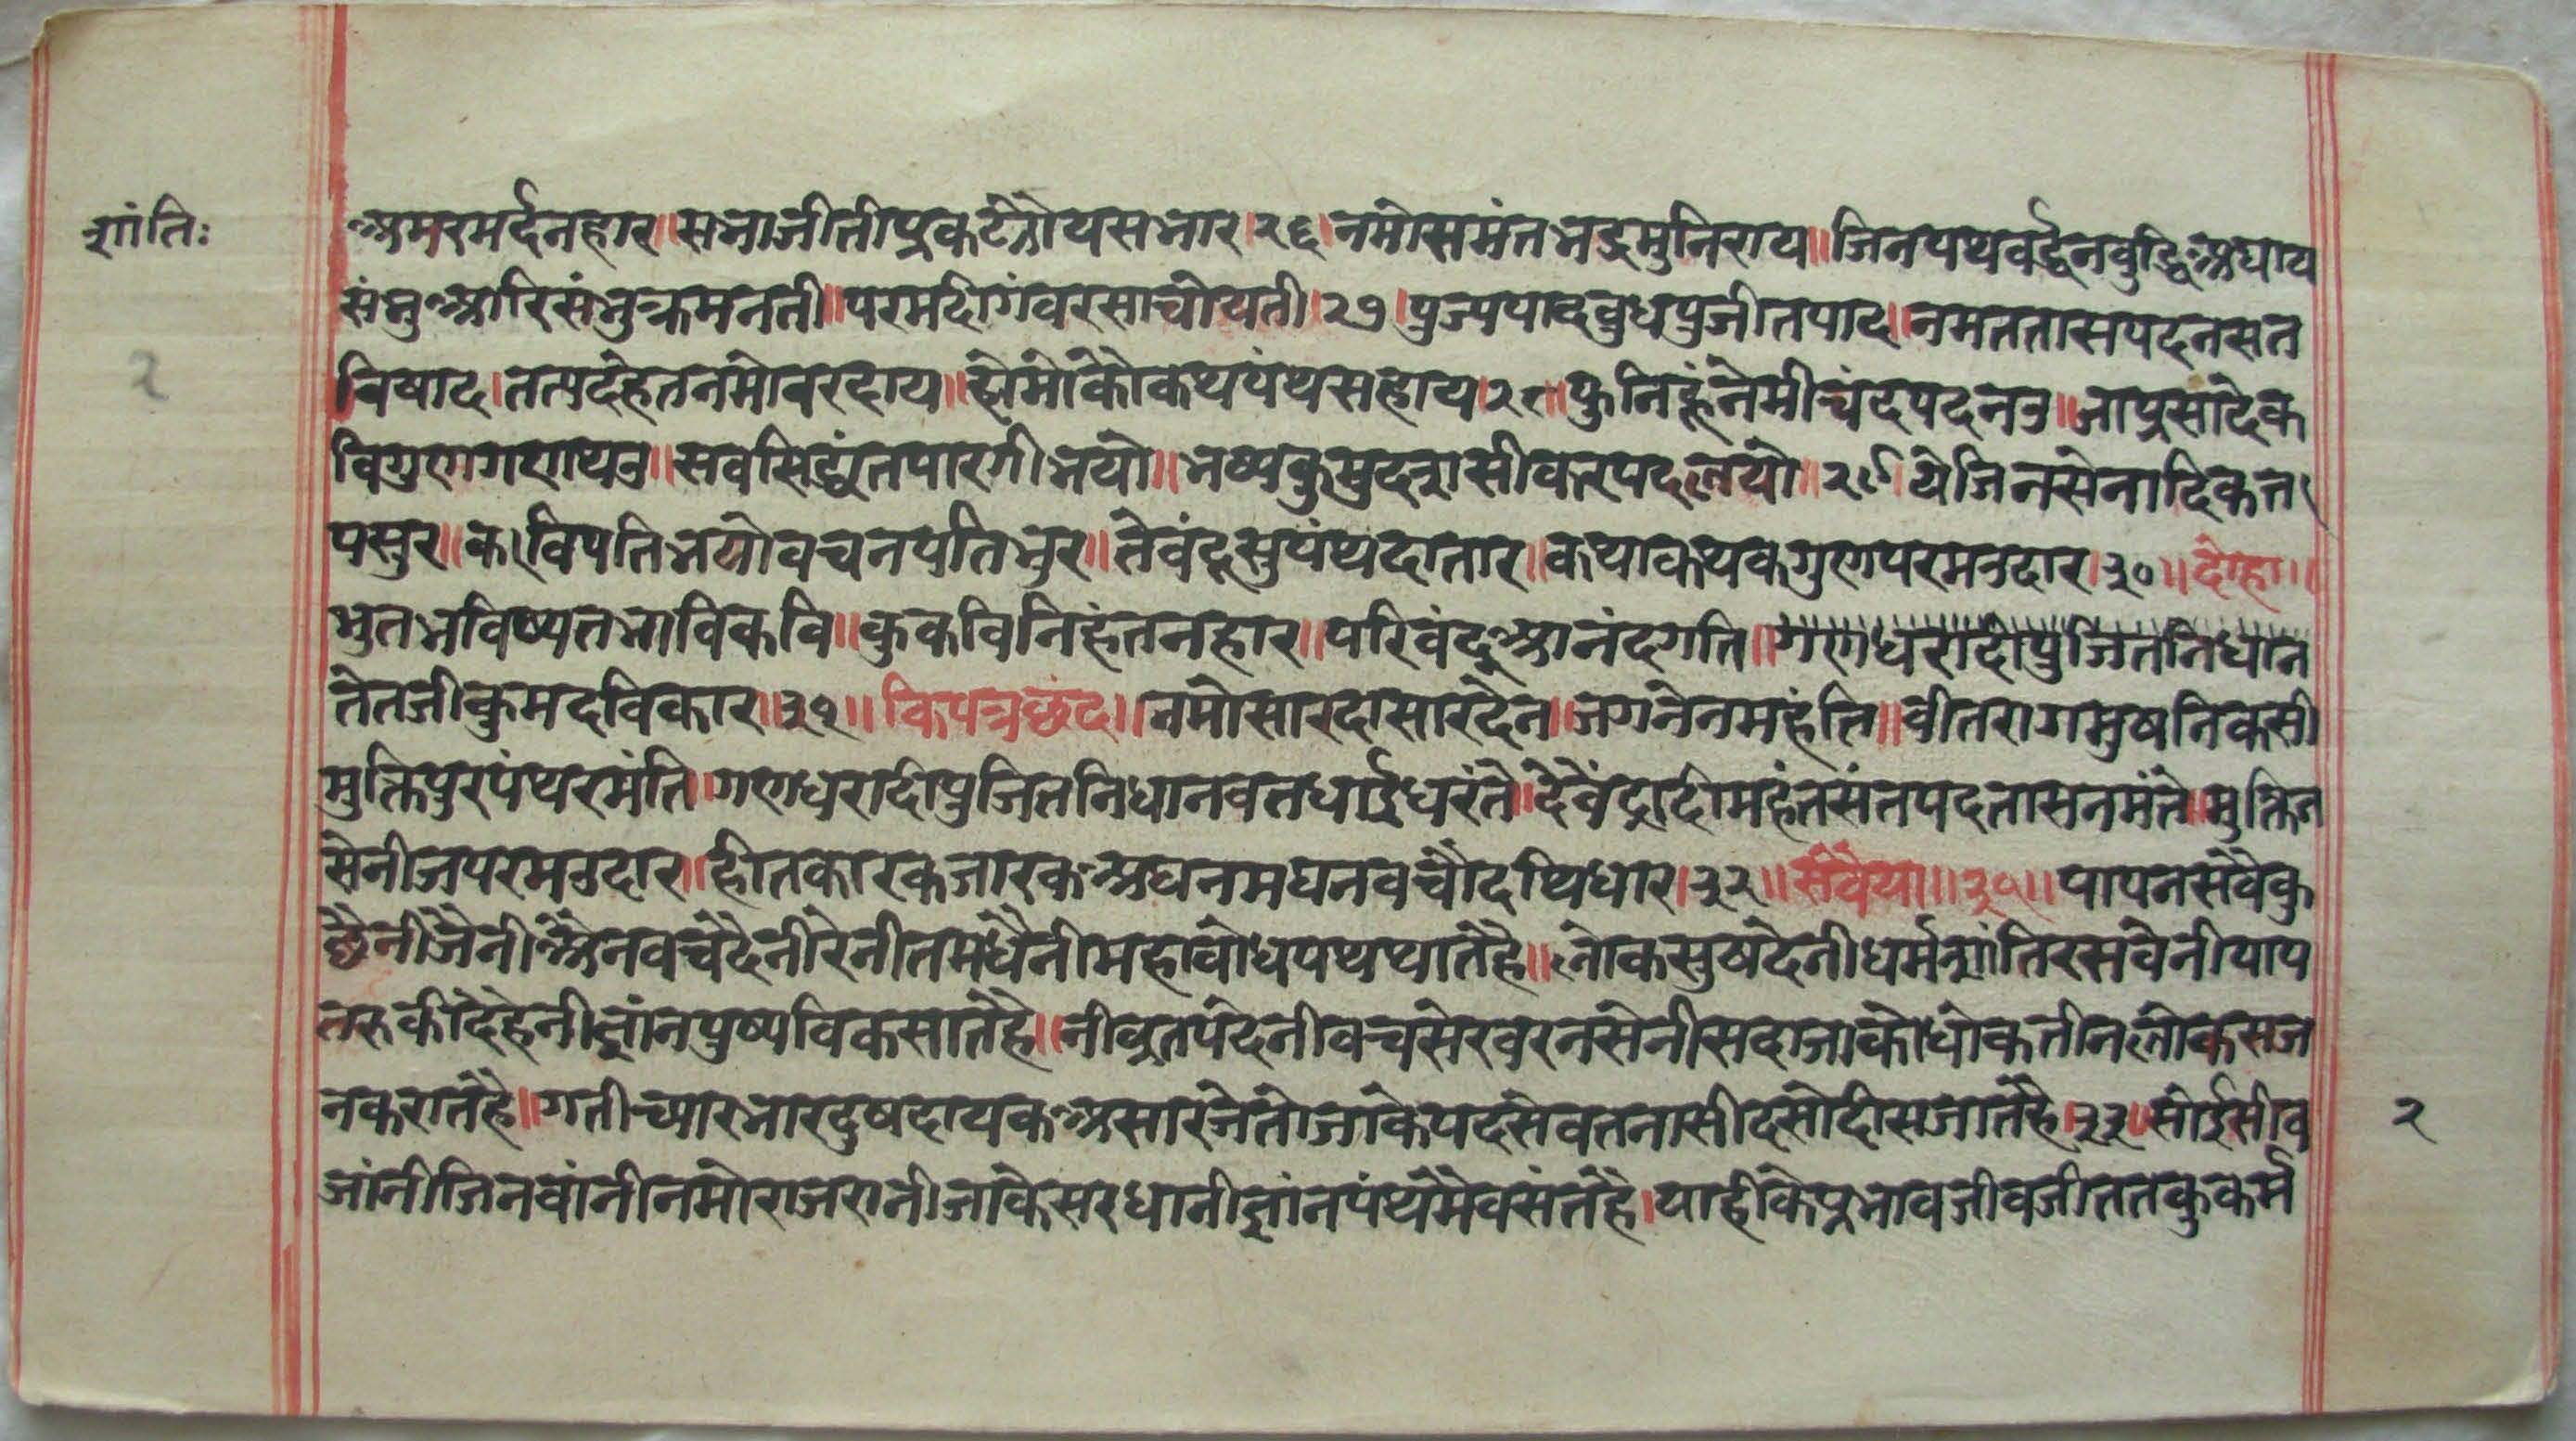 शांतिः
अमरमर्दनहार॥सभाजीतीप्रकटेगोयसभार।२६।नमोसमंतभद्रमुनिराय॥जिनपथवर्द्धनबुद्धिअघाय
संभुआरिसंभुक्रमनती॥परमदीगंवरसाचोयती।२७।पुज्यपादवुधपुजीतपाद।नमततासपदनसत
विषाद।तत्पदंहेतनमोवरदाय॥होमोकोकथपंथसहाय।२८।फुनिहूंनेमीचंदपदनउ॥जाप्रसादेक
विगुणगणथउ॥सवसिद्धांतपारगीभयो॥भव्यकुमुदरासीकरपदलयो॥२९येजिनसेनादिकत
पसुर॥कविपतिभयोवचनपतिभुर॥तेवंदूसुपंथदातार॥कथाकथकगुणपरमउदार।३०॥दोहा॥
भुतभविष्यतभाविकवि॥कुकविनिहंतनहार॥परिवंदुआनंदगति॥गणधरादीपुजितनिधान
तेतजीकुमदविकार॥३१॥किपत्रछंद॥नमोसारदासारदेन॥जगनेनमहंति॥वीतरागमुषनिकसी
मुक्तिपुरपंथरमंति।गणधरादीपुजितनिधानवतधाईधरंते॥देवेंद्रादीमहंतसंतपदतासनमंते॥मुक्तित
सेनीजपरमउदार॥हीतकारकजारकअघनमघनवचौदधिधार।३२॥सवैया॥३१॥पापनसेवेकु
छैनीजैनीऐनवचदैनीरेनीतमधैनीमहावोधपथथातेहै॥लोकसुषदेनीधर्मशांतिरसवेनीपाप
तरुकीदेहेनीज्ञांनपुष्पविकसातेहै॥नीवृतपदेनीवचसेरवरनसेनीसदाजाकोधोकतीनलोकसज
नकरातेहै॥गतीच्यारभारदुषदायकअसारजेतोजाकेपदसेवतनासीदसोदीसजातेहै।३३॥सोईसीव
जांनीजिनवांनीनमोराजरानीजाकेसरधानीज्ञांनपंथमेवसंतहै।याहीकेप्रभावजीवजीततकुकर्म
२
२